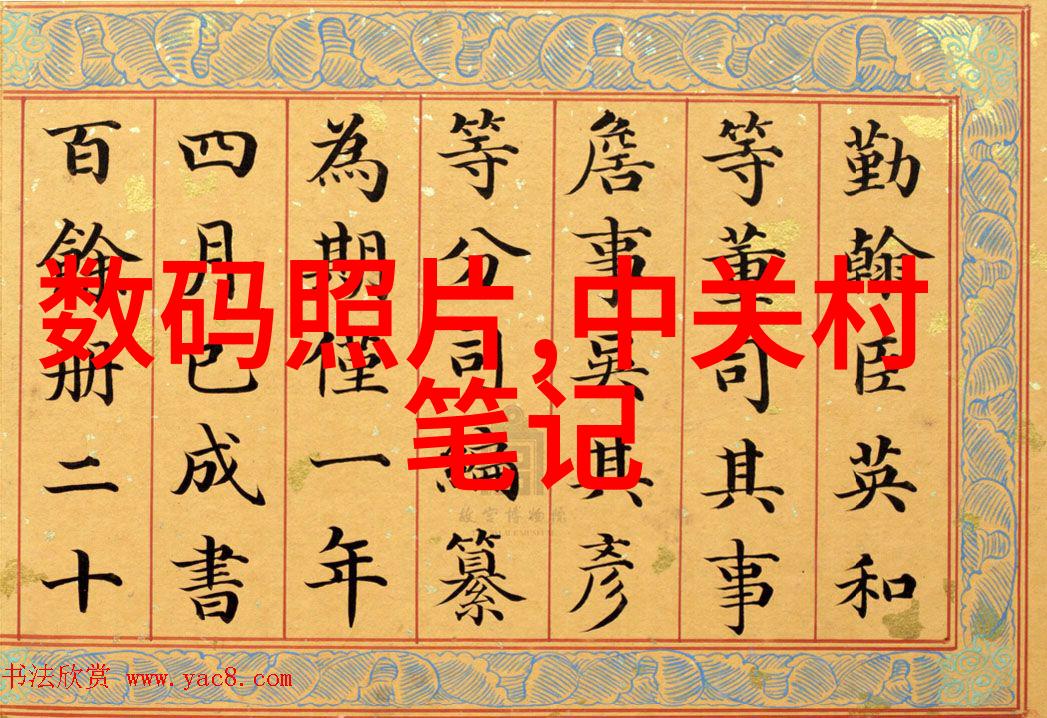 勤翰臣英和
等董司其事
詹事吴其彦
等分司編纂
為期僅一年
四月已成書
百餘册二十
数码照片,中关村
笔记
故宫博物院
书法欣赏 www.yac8.com